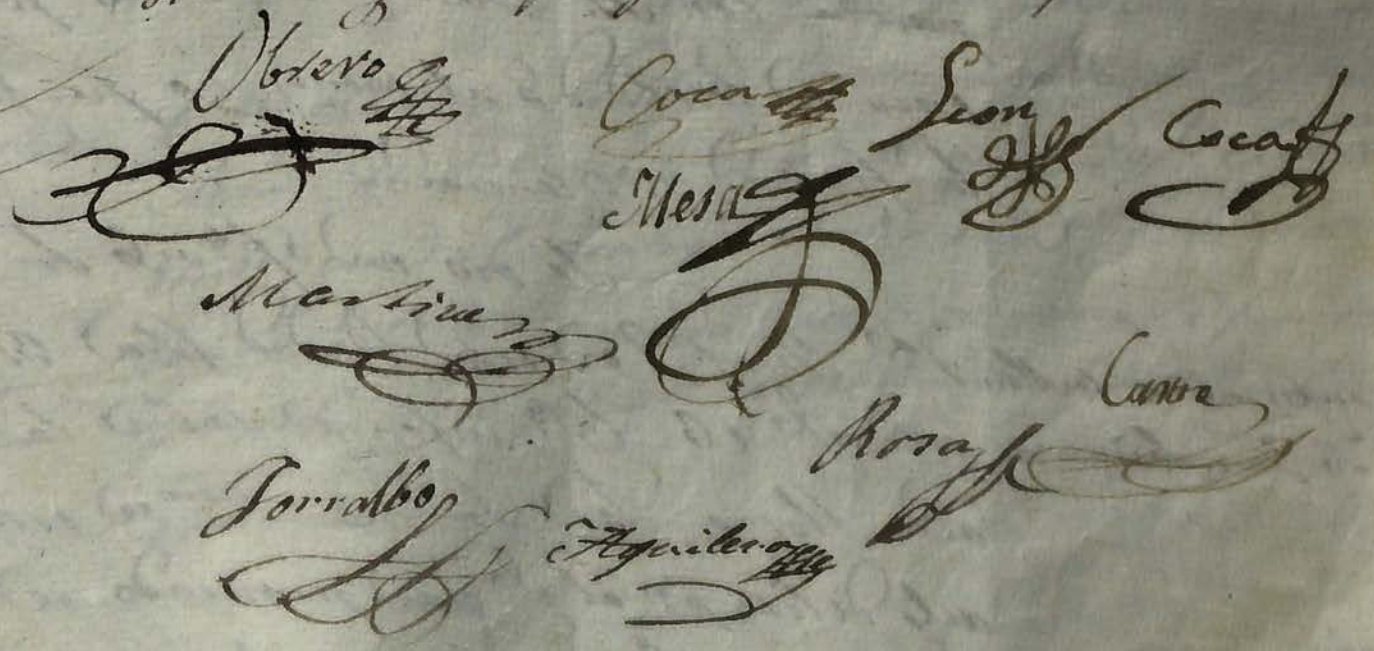 Obrero Coca Leon Coca
Mesa
Martinez
Rosa
Torralbo Aguilera